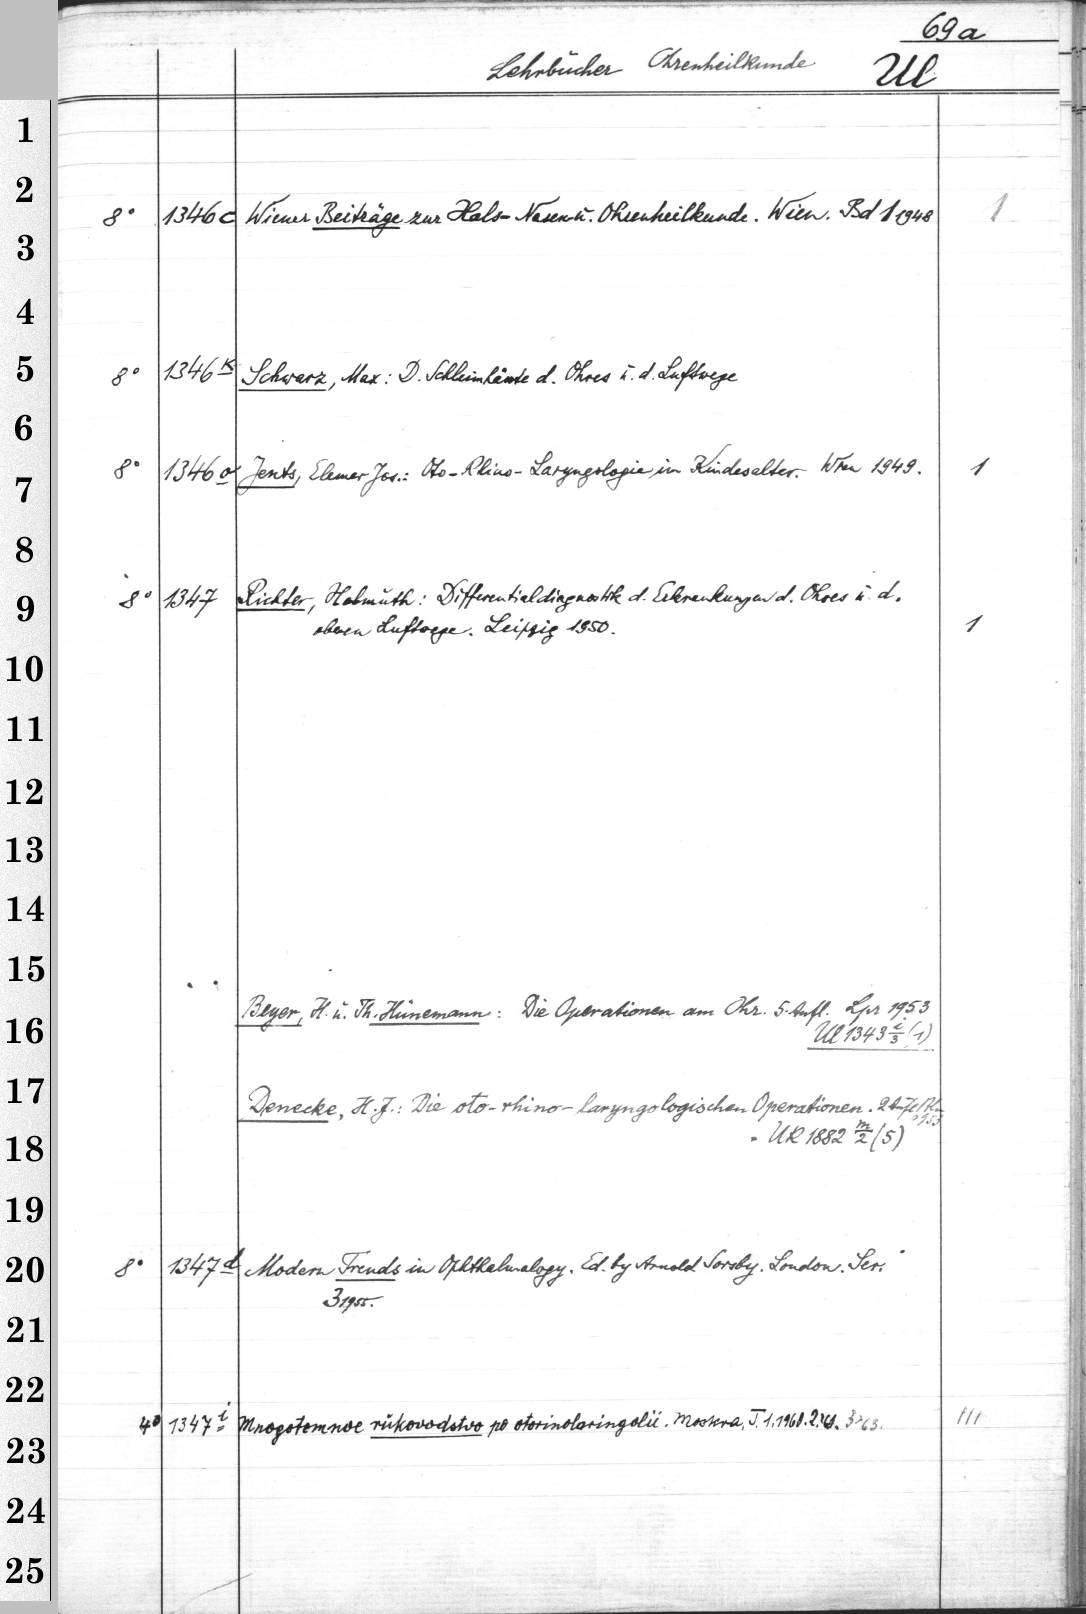 69a
Lehrbücher Ohrenheilkunde Ul
1
2
8° 1346c Wiener Beiträge zur Hals- Nasen- u. Ohrenheilkunde. Wien. Bd 1 1948 1
3
4
5
8° 1346 k Schwarz, Max: D. Schleimhäute d. Ohres u. d. Luftwege
6
8° 1346 o Jents, Elemer Jos.: Oto-Rhino-Laryngologie im Kindesalter. Wien 1949. 1
7
8
9
8° 1347 Richter, Helmuth: Differentialdiagnostik d. Erkrankungen d. Ohres u. d.
oberen Luftwege. Leipzig 1950. 1
10
11
12
13
14
15
16
Beyer, H. u. Th. Hünemann: Die Operationen am Ohr. 5. Aufl. Lpz 1953
Ul 1343 i/3 (1)
17
Denecke, H. J.: Die oto-rhino-laryngologischen Operationen. 2 Aufl. Bln 1953
18
UR 1882 m/2 (5)
19
20
8° 1347 d Modern Trends in Ophthalmology. Ed. by Arnold Sorsby. London. Ser.
3 1955.
21
22
4° 1347 i Mnogotomnoe rukovodstvo po otorinolaringolii. Moskva, T. 1. 1960. 2.'60. 3.'63. III
23
24
25